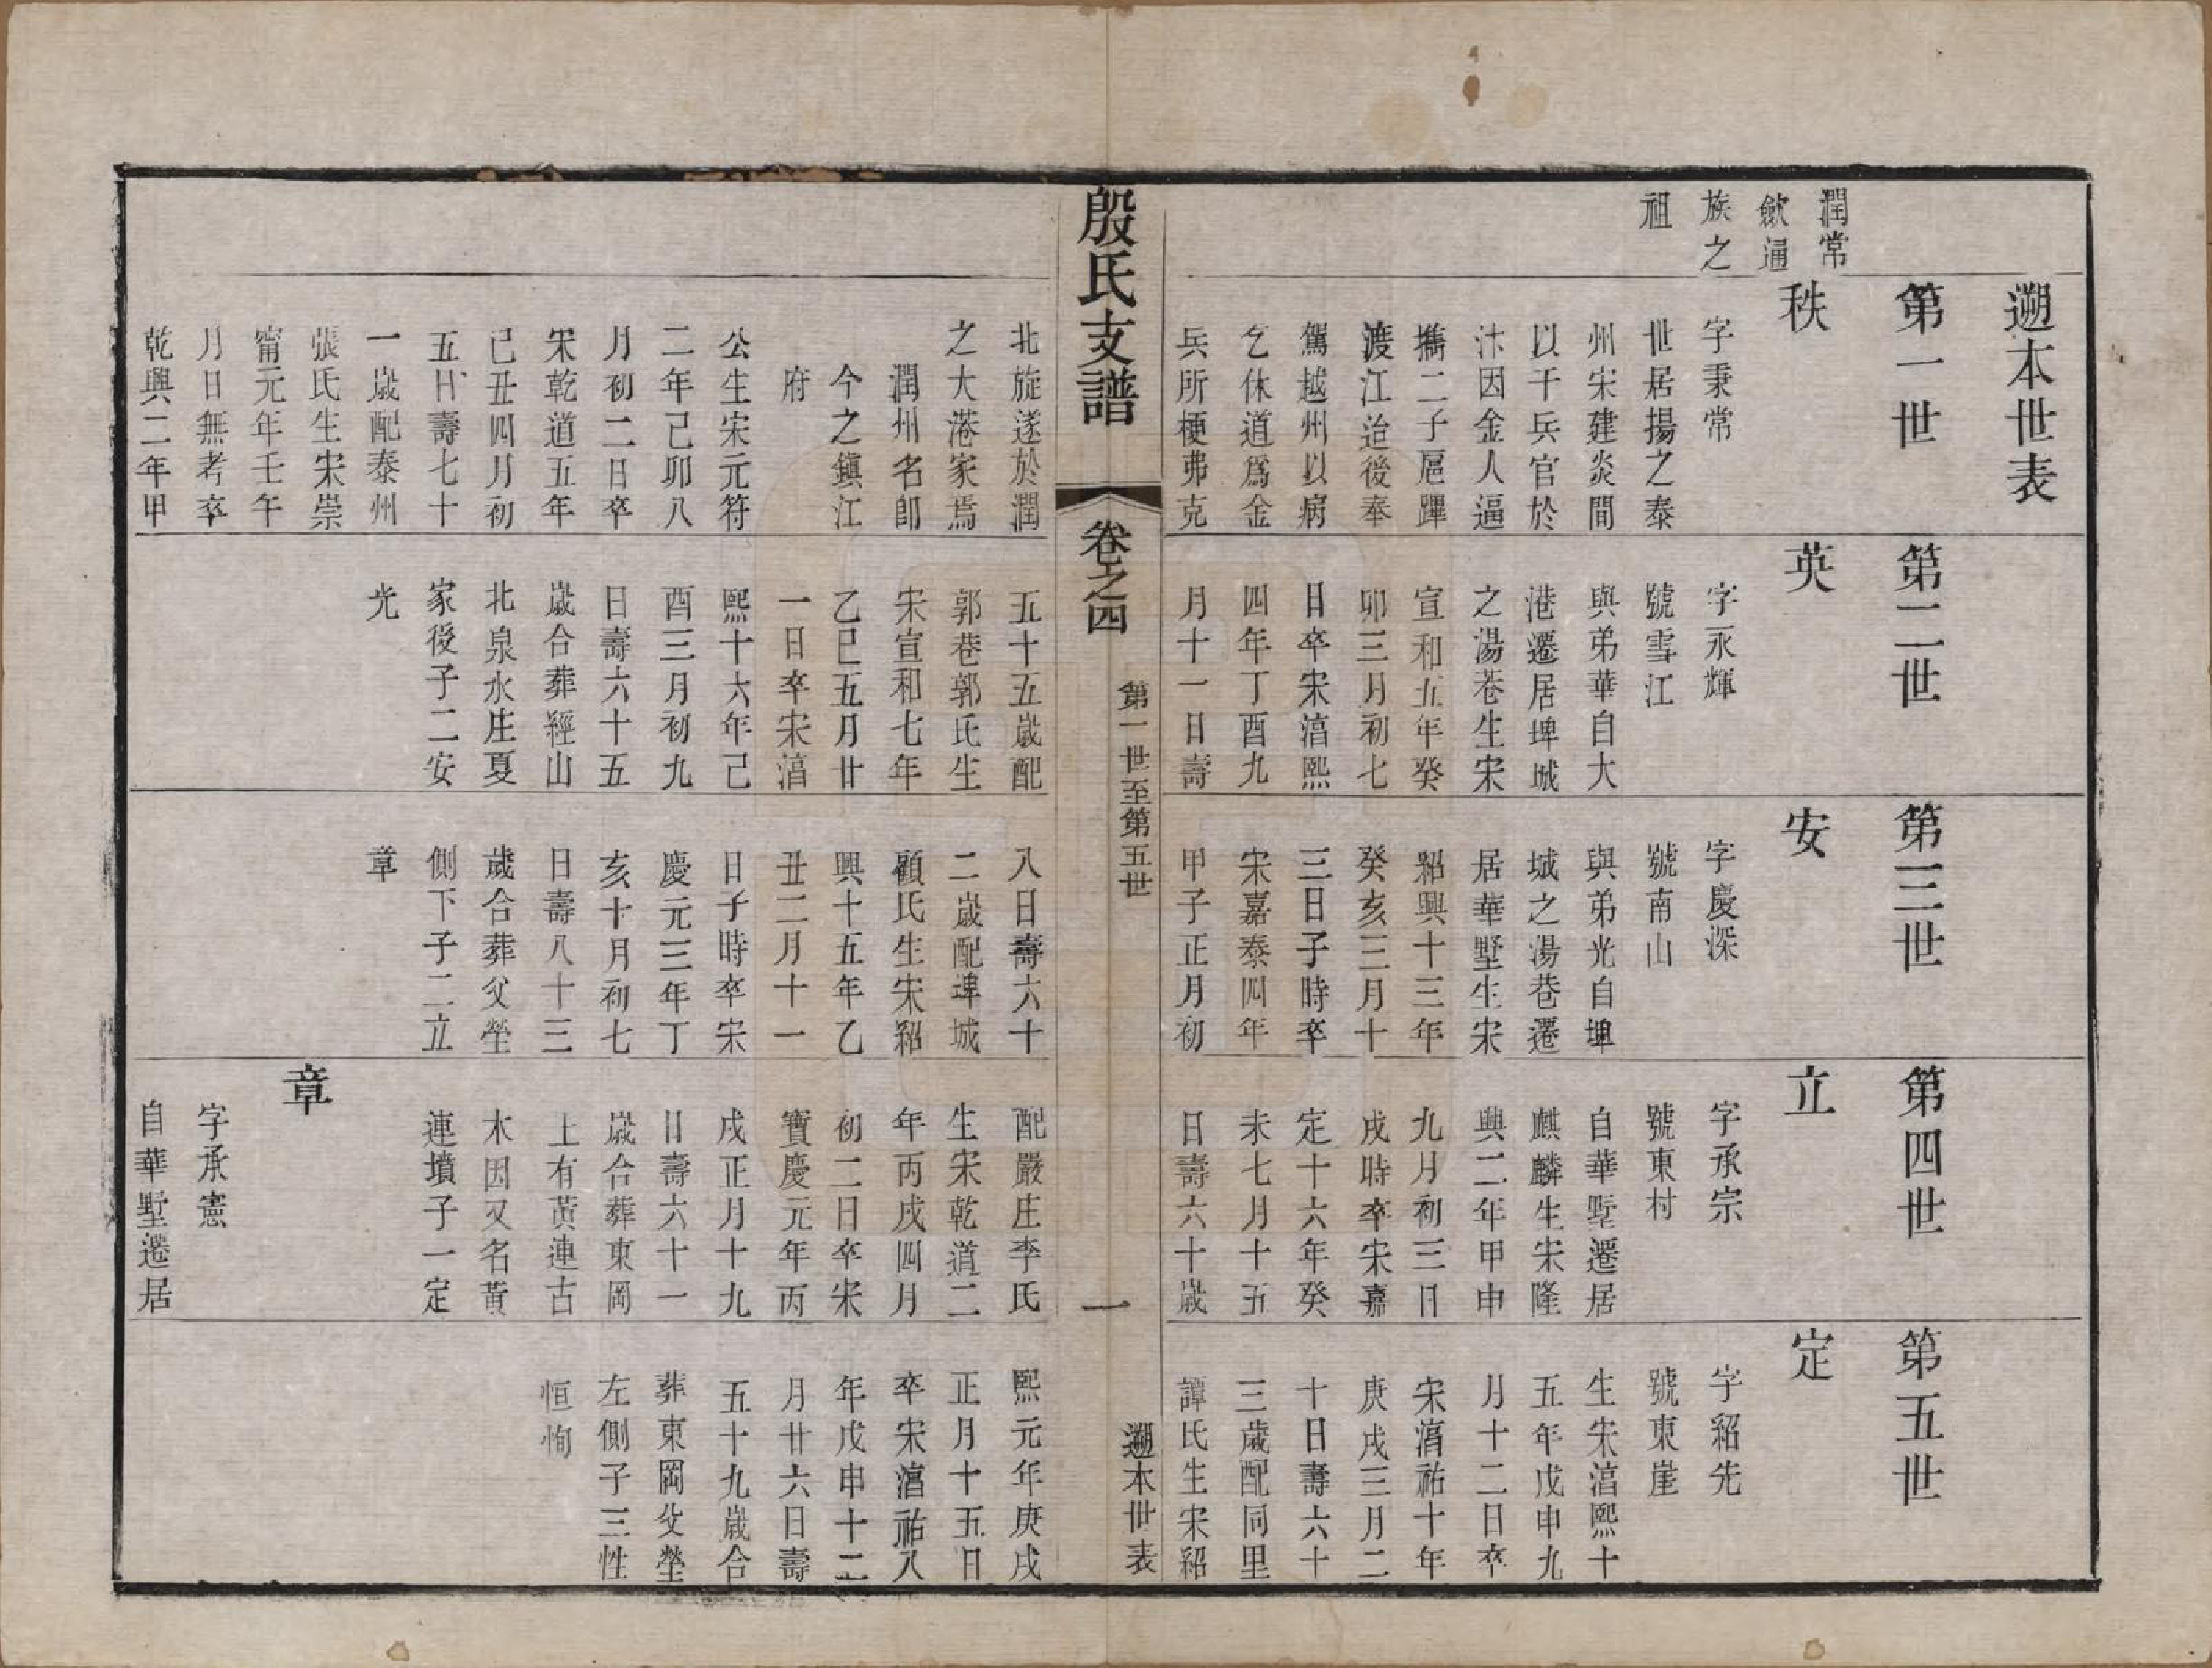 遡本世表
潤常
歙通
族之
祖
第一世
秩
字秉常
世居揚之泰
州宋建炎間
以干兵官於
汴因金人逼
攜二子扈蹕
渡江迨後奉
駕越州以病
乞休道爲金
兵所梗弗克
北旋遂於潤
之大港家焉
潤州名郎
今之鎭江
府
公生宋元符
二年己卯八
月初二日卒
宋乾道五年
己丑四月初
五日壽七十
一歲配泰州
張氏生宋崇
甯元年壬午
月日無考卒
乾興二年甲
第二世
英
字永輝
號雪江
與弟華自大
港遷居埤城
之湯巷生宋
宣和五年癸
卯三月初七
日卒宋湻熙
四年丁酉九
月十一日壽
五十五歲配
郭巷郭氏生
宋宣和七年
乙巳五月廿
一日卒宋湻
熙十六年己
酉三月初九
日壽六十五
歲合葬經山
北泉水庄夏
家後子二安
光
第三世
安
字慶深
號南山
與弟光自埤
城之湯巷遷
居華墅生宋
紹興十三年
癸亥三月十
三日子時卒
宋嘉泰四年
甲子正月初
八日壽六十
二歲配埤城
顧氏生宋紹
興十五年乙
丑二月十一
日子時卒宋
慶元三年丁
亥十月初七
日壽八十三
歲合葬父塋
側下子二立
章
第四世
立
字承宗
號東村
自華墅遷居
麒麟生宋隆
興二年甲申
九月初三日
戌時卒宋嘉
定十六年癸
未七月十五
日壽六十歲
配嚴庄李氏
生宋乾道二
年丙戌四月
初二日卒宋
寶慶元年丙
戌正月十九
日壽六十一
歲合葬東岡
上有黃連古
木因又名黃
連墳子一定
章
字承憲
自華墅遷居
第五世
定
字紹先
號東崖
生宋湻熙十
五年戊申九
月十二日卒
宋湻祐十年
庚戌三月二
十日壽六十
三歲配同里
譚氏生宋紹
熙元年庚戌
正月十五日
卒宋湻祐八
年戊申十二
月廿六日壽
五十九歲合
葬東岡父塋
左側子三性
恒恂
殷氏支譜
卷之四
第一世至第五世
一
遡本世表